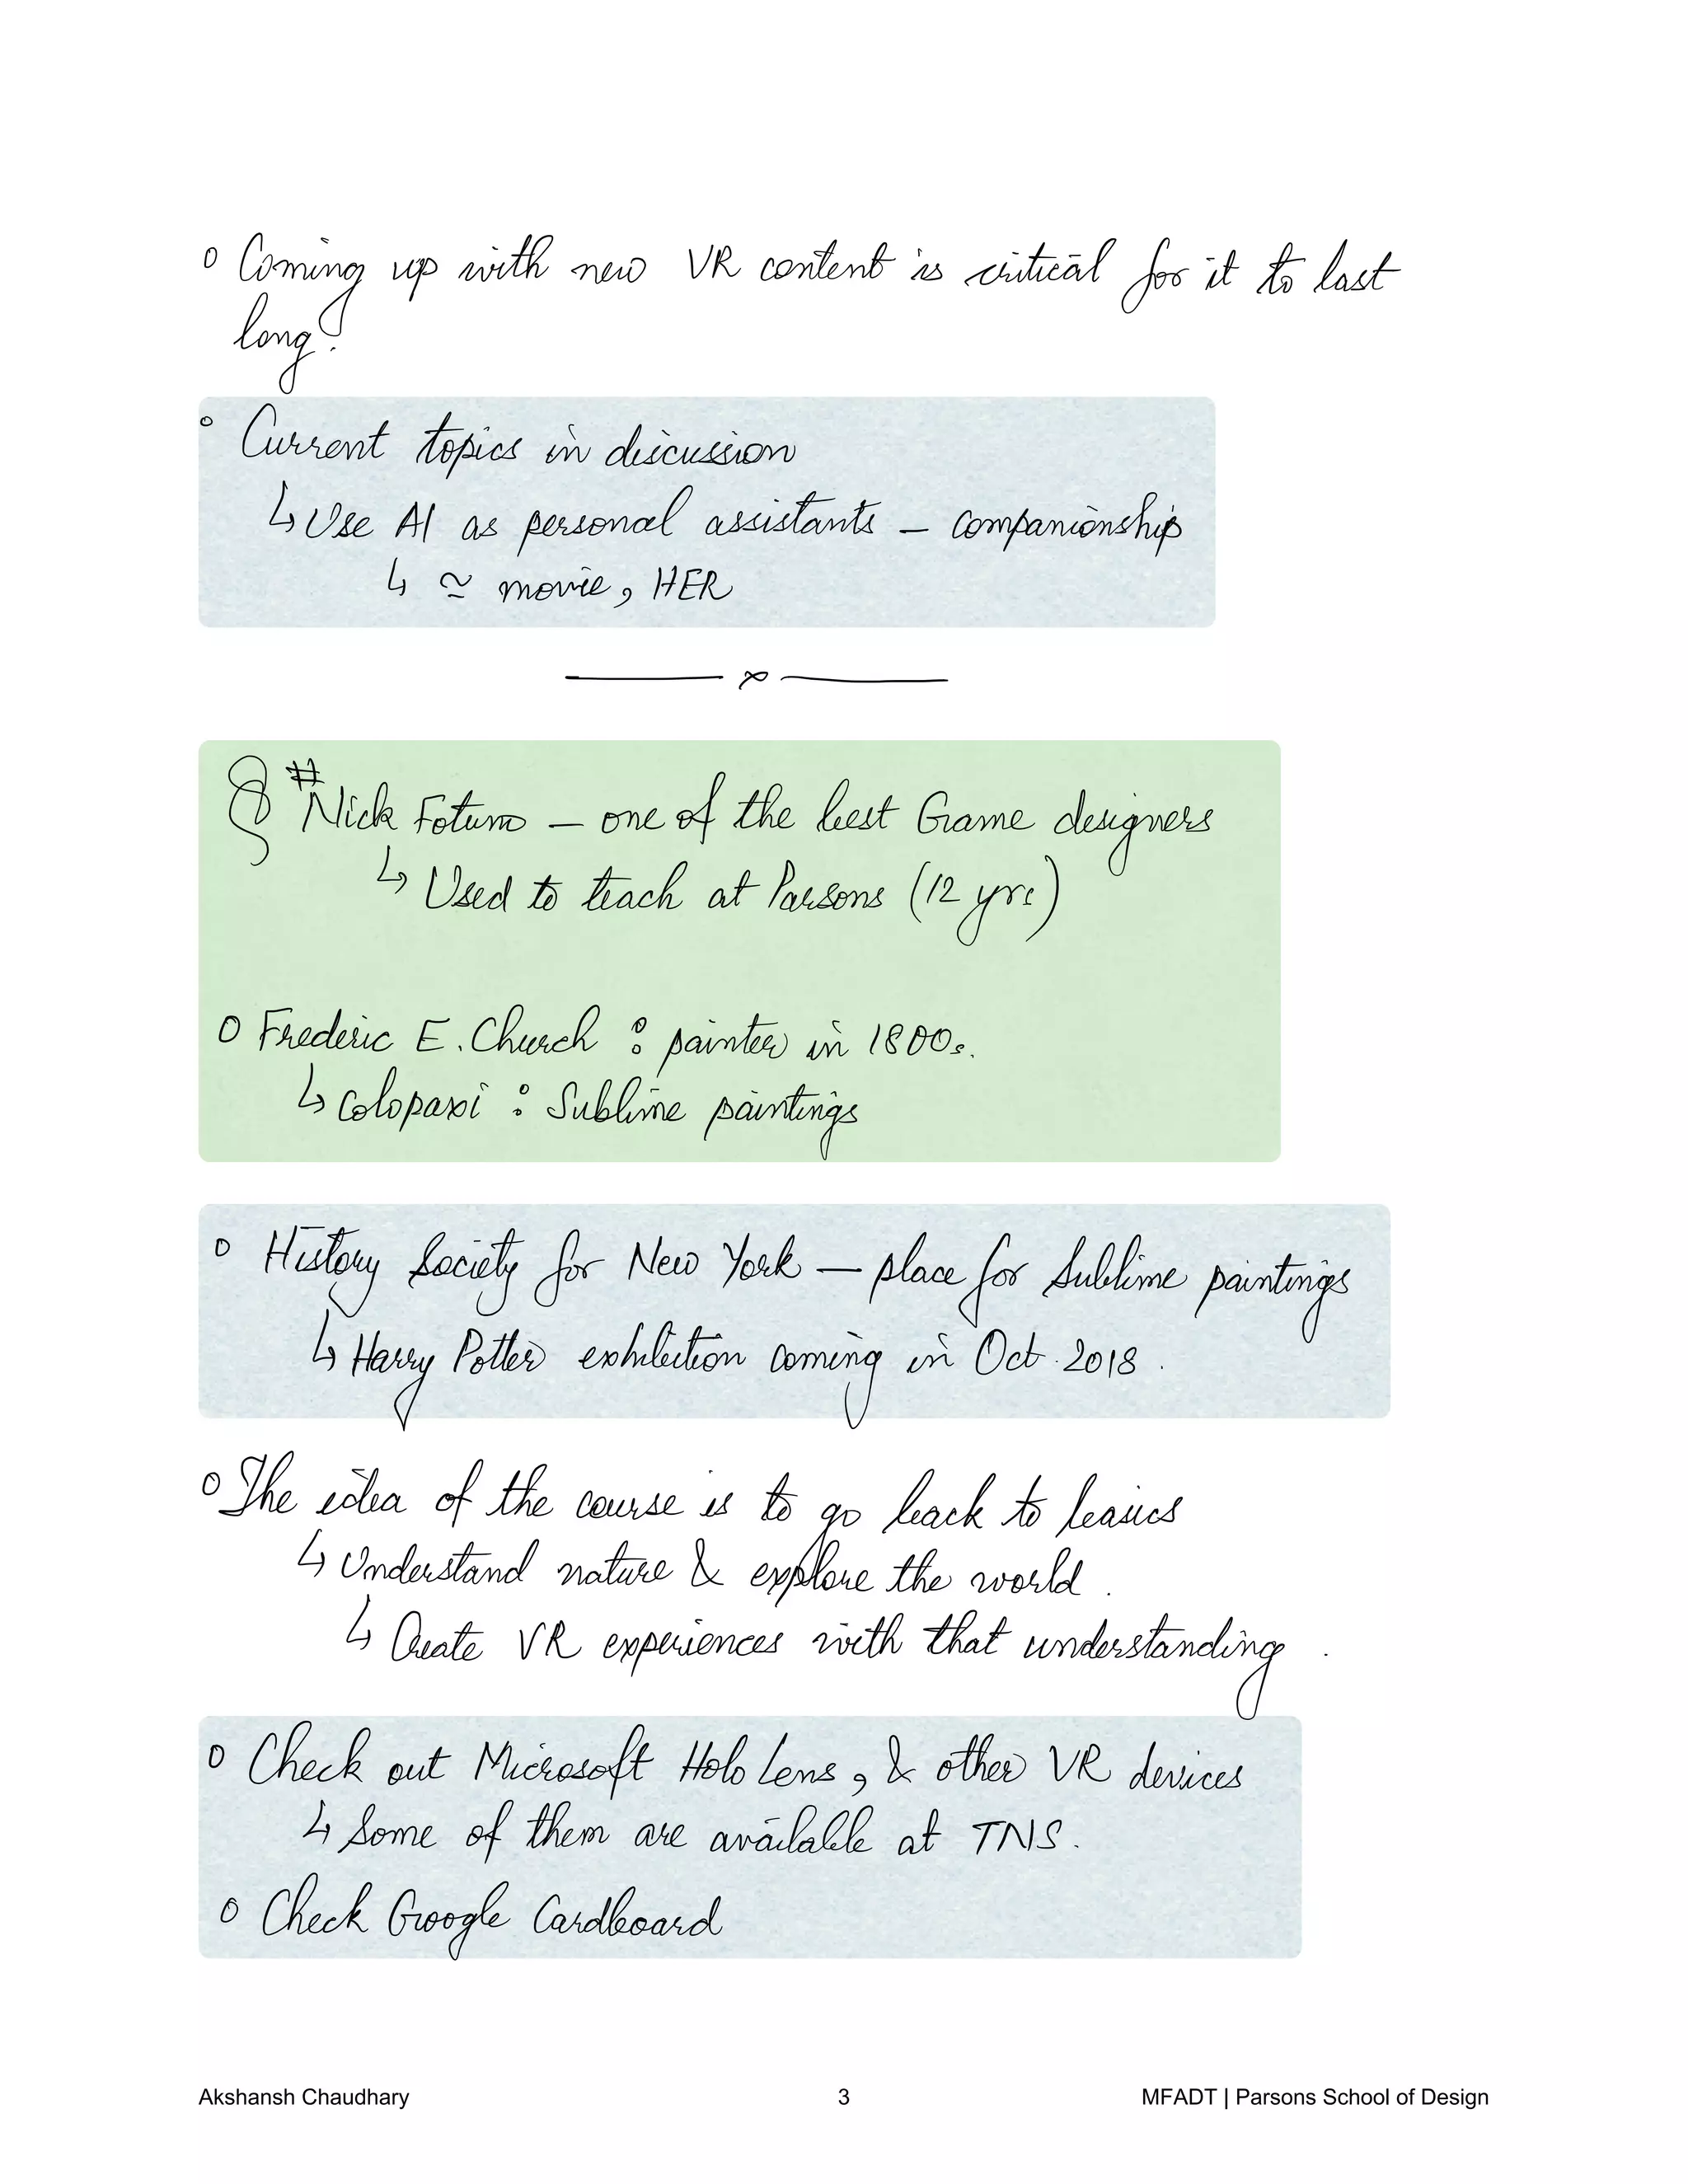 o Coming up with new VR content is critical for it to last
long!
o Current topics in discussion
↳ Use AI as personal assistants – companionship
↳ ≃ movie, HER
# Nick Foturo – one of the best Game designers
↳ Used to teach at Parsons (12 yrs)
o Frederic E. Church : painter in 1800s.
↳ Colopaxi : Sublime paintings
o History Society for New York – place for Sublime paintings
↳ Harry Potter exhibition coming in Oct. 2018.
o The idea of the course is to go back to basics
↳ Understand nature & explore the world.
↳ Create VR experiences with that understanding.
o Check out Microsoft HoloLens, & other VR devices
↳ Some of them are available at TNS.
o Check Google Cardboard
Akshansh Chaudhary 3 MFADT | Parsons School of Design